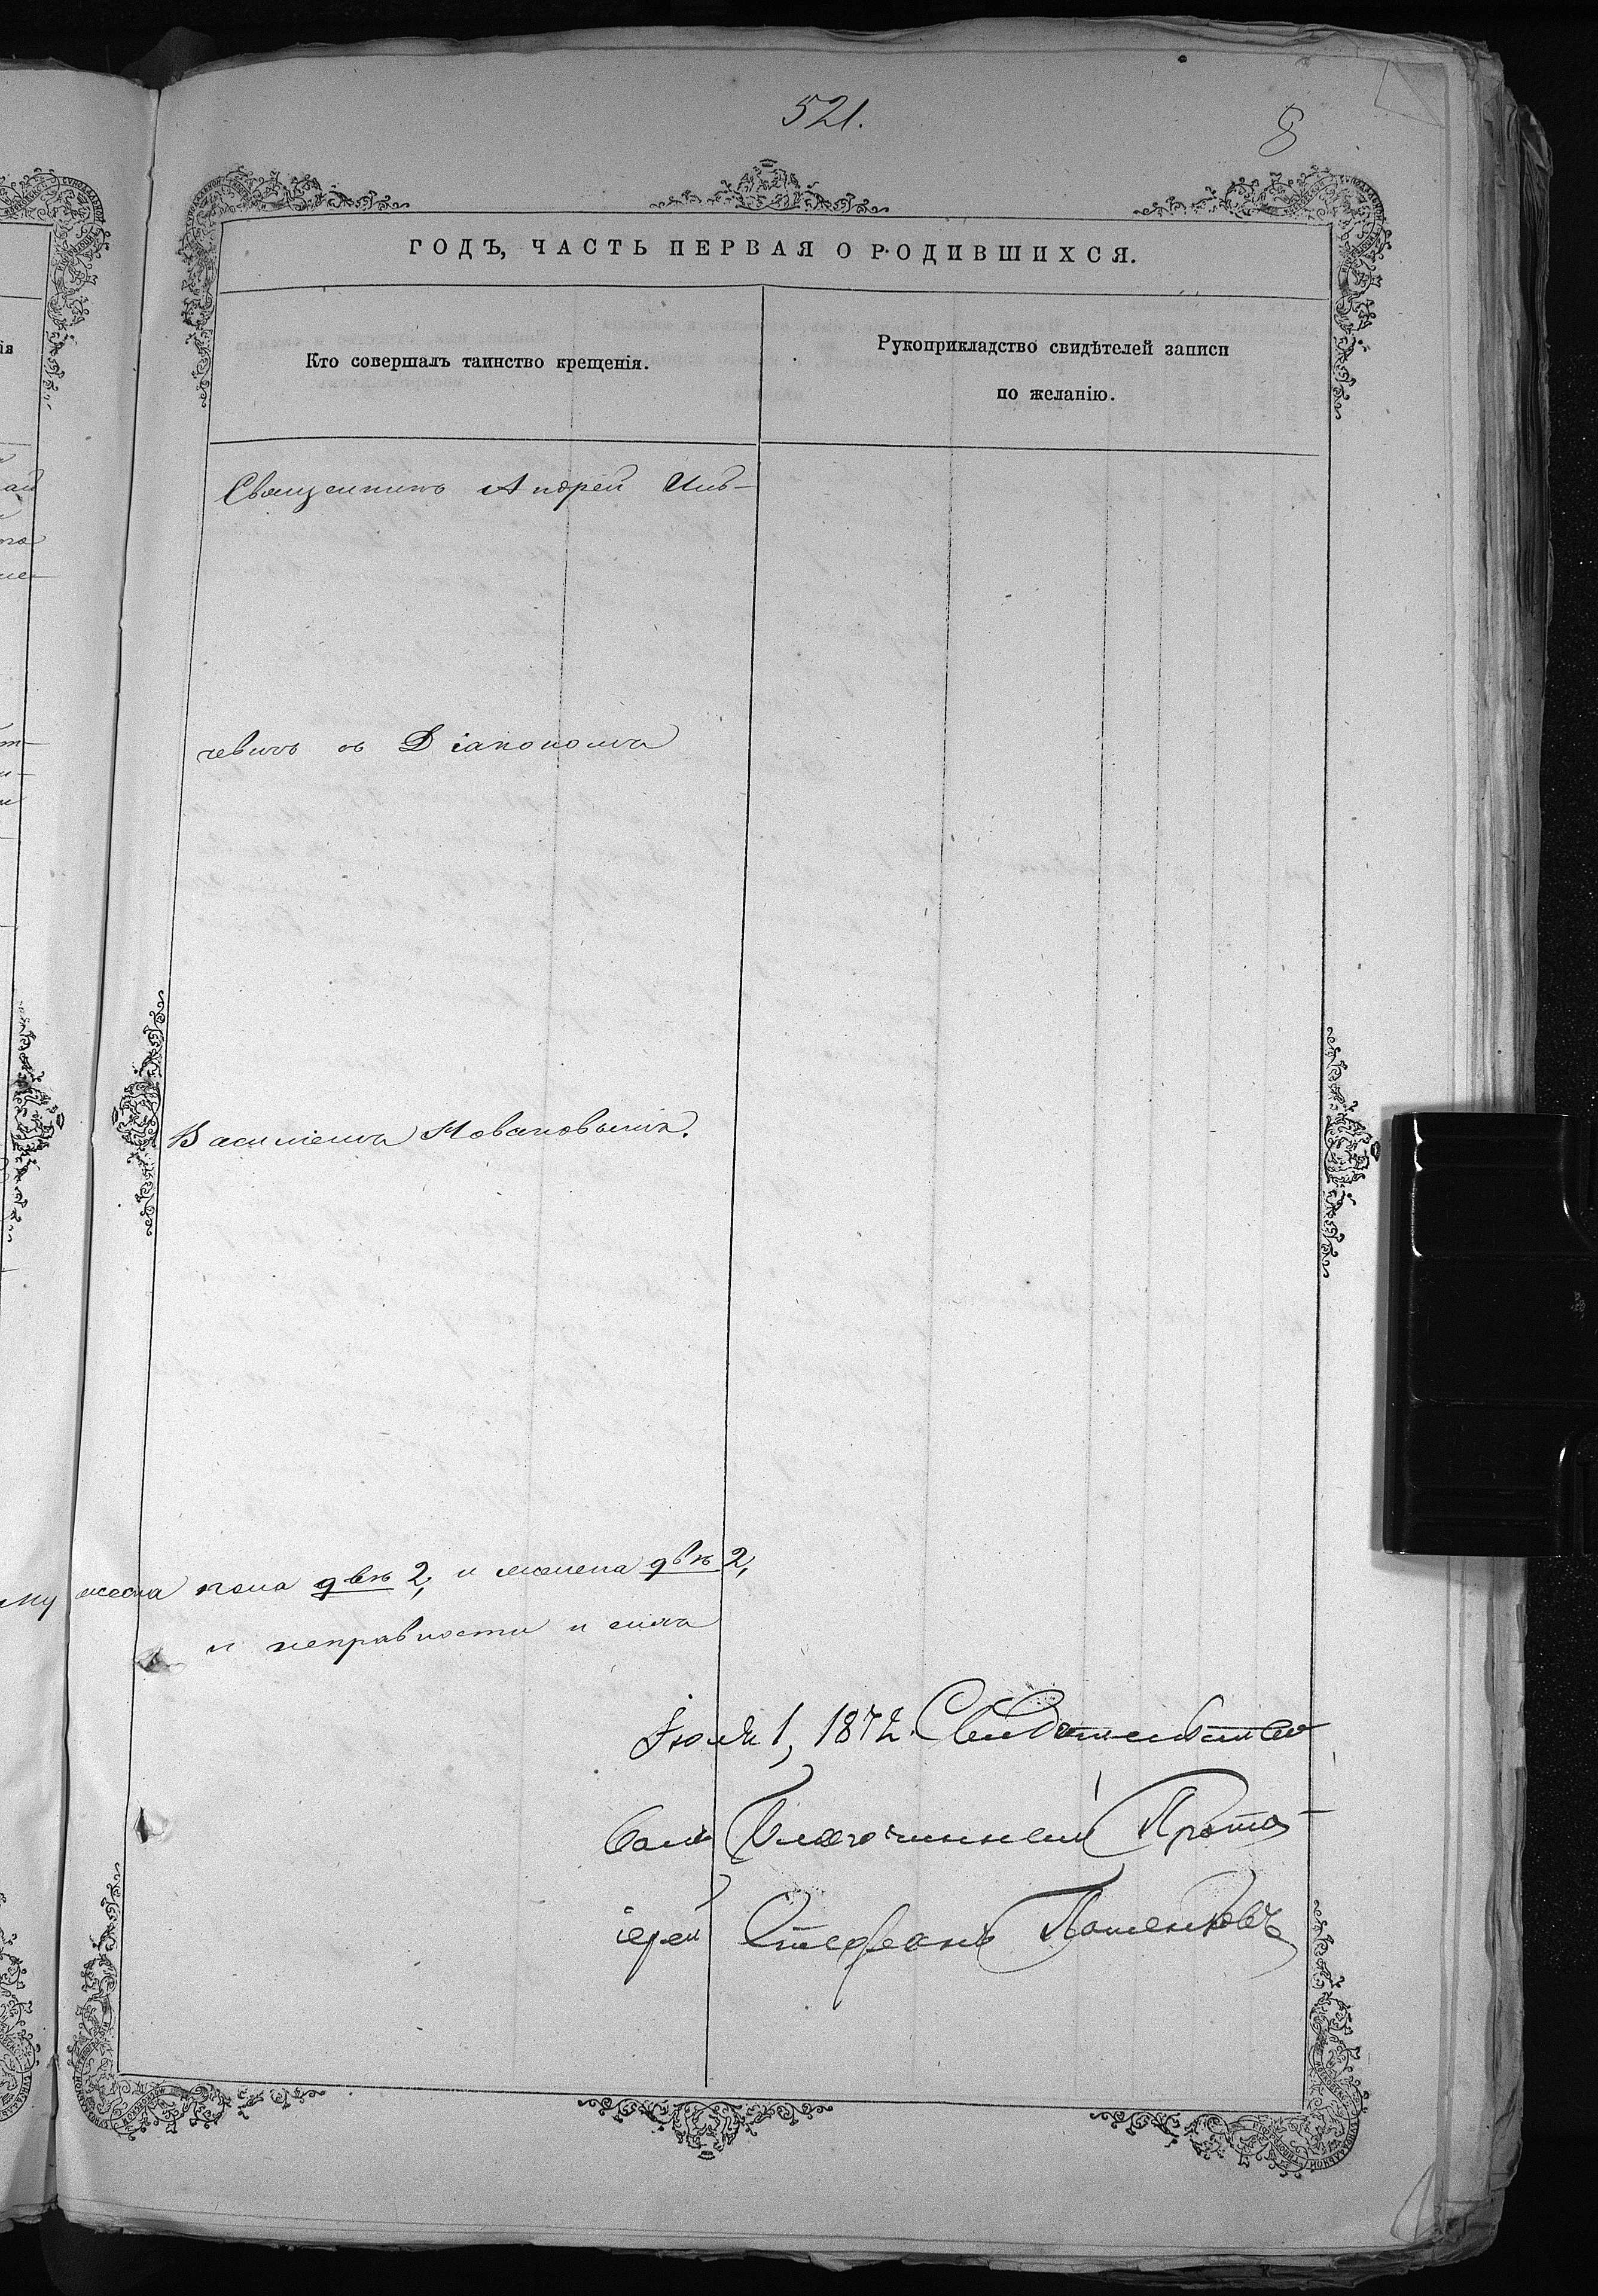 521.
8
ГОДЪ, ЧАСТЬ ПЕРВАЯ О РОДИВШИХСЯ.
Кто совершалъ таинство крещенія.
Рукоприкладство свидѣтелей записи
по желанію.
Священникъ Андрей
чевичъ съ Діакономъ
Василіемъ
мужеска пола двѣ 2, и женска двѣ 2,
и исправности и
Іюля 1, 1872. Свидѣтельство
валъ Благочинный Прото-
іерей Стефанъ